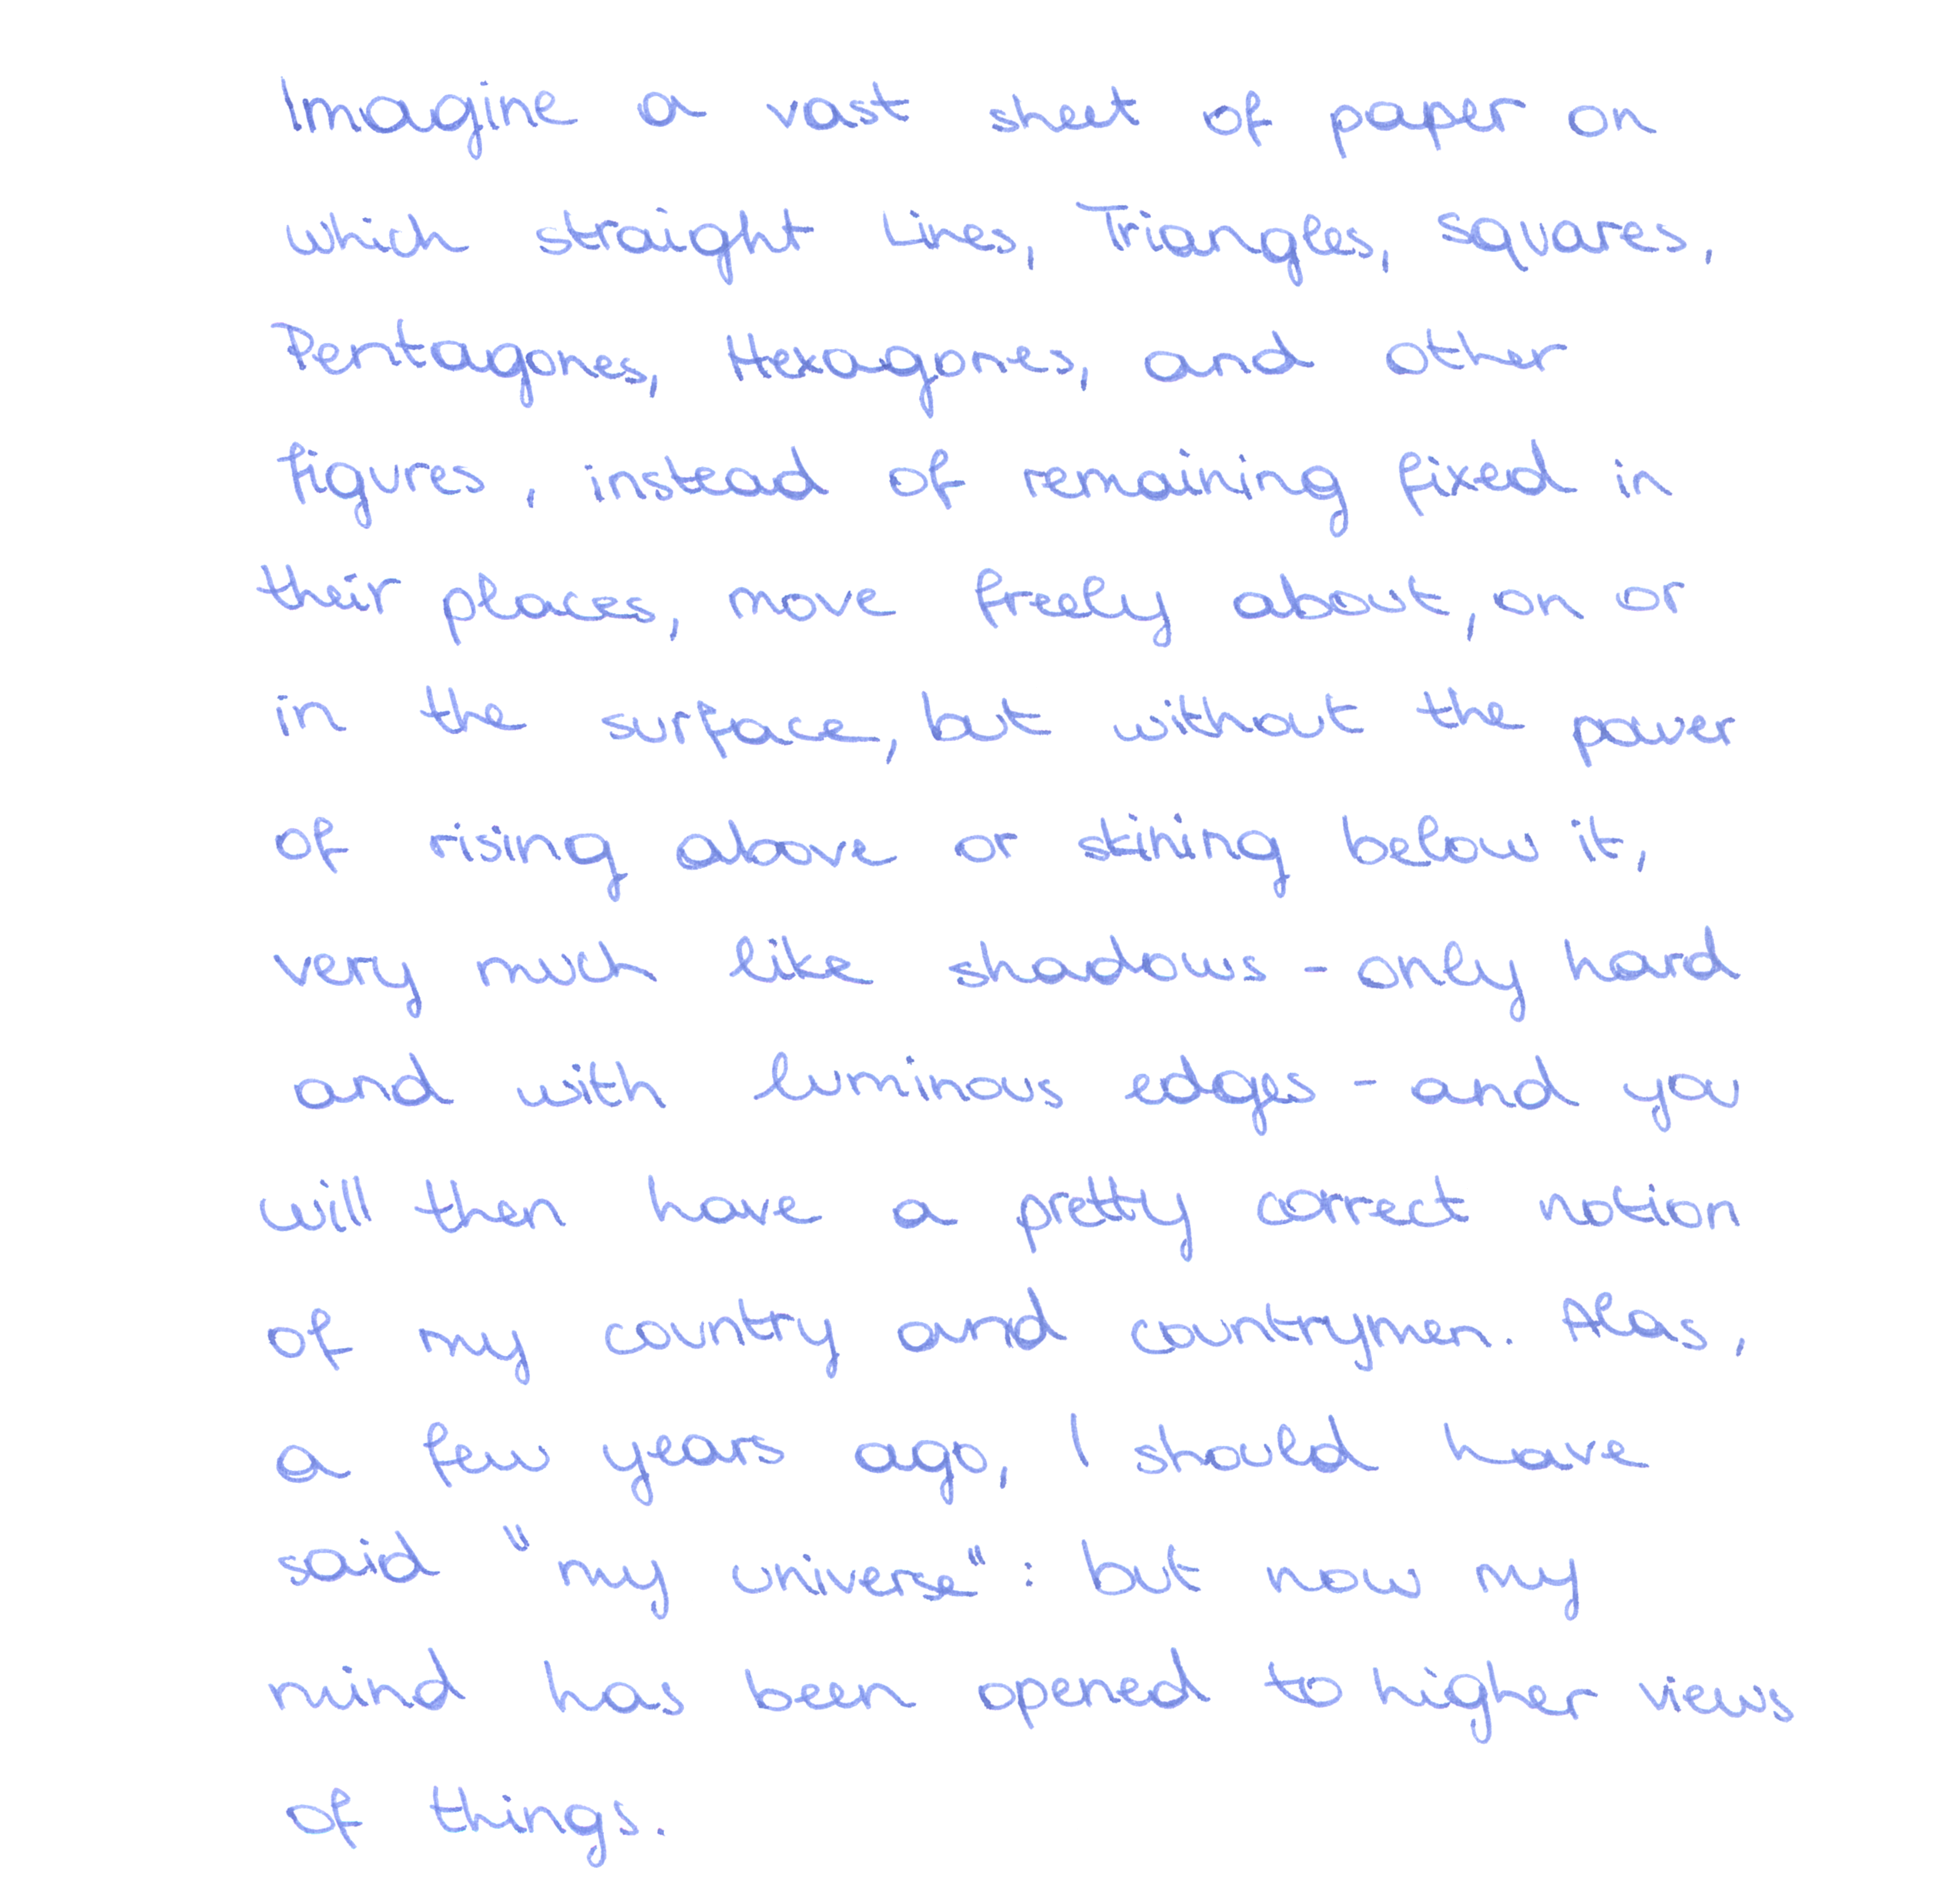 Imagine a vast sheet of paper on
which straight Lines, Triangles, Squares,
Pentagones, Hexagones, and other
figures, instead of remaining fixed in
their places, move freely about, on or
in the surface, but without the power
of rising above or sining below it,
very much like shadows - only hard
and with luminous edges - and you
will then have a pretty correct notion
of my country and countrymen. Alas,
a few years ago, I should have
said "my universe": but now my
mind has been opened to higher views
of things.